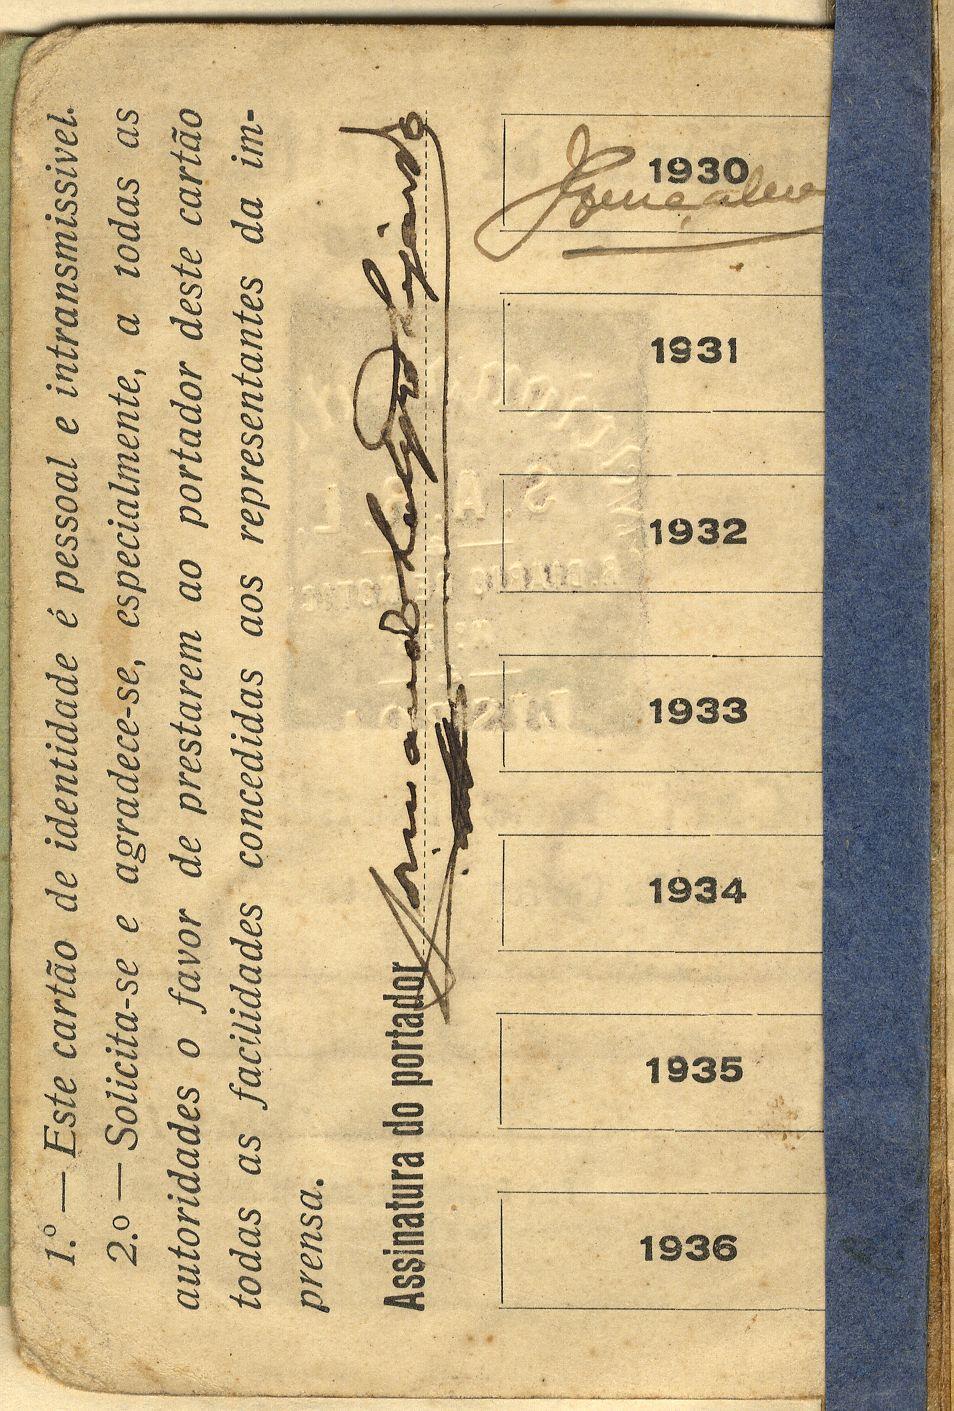 1.º — Este cartão de identidade é pessoal e intransmissivel.
2.º — Solicita-se e agradece-se, especialmente, a todas as
autoridades o favor de prestarem ao portador deste cartão
todas as facilidades concedidas aos representantes da im-
prensa.
Assinatura do portador
1930
Gonçalves
1931
1932
1933
1934
1935
1936